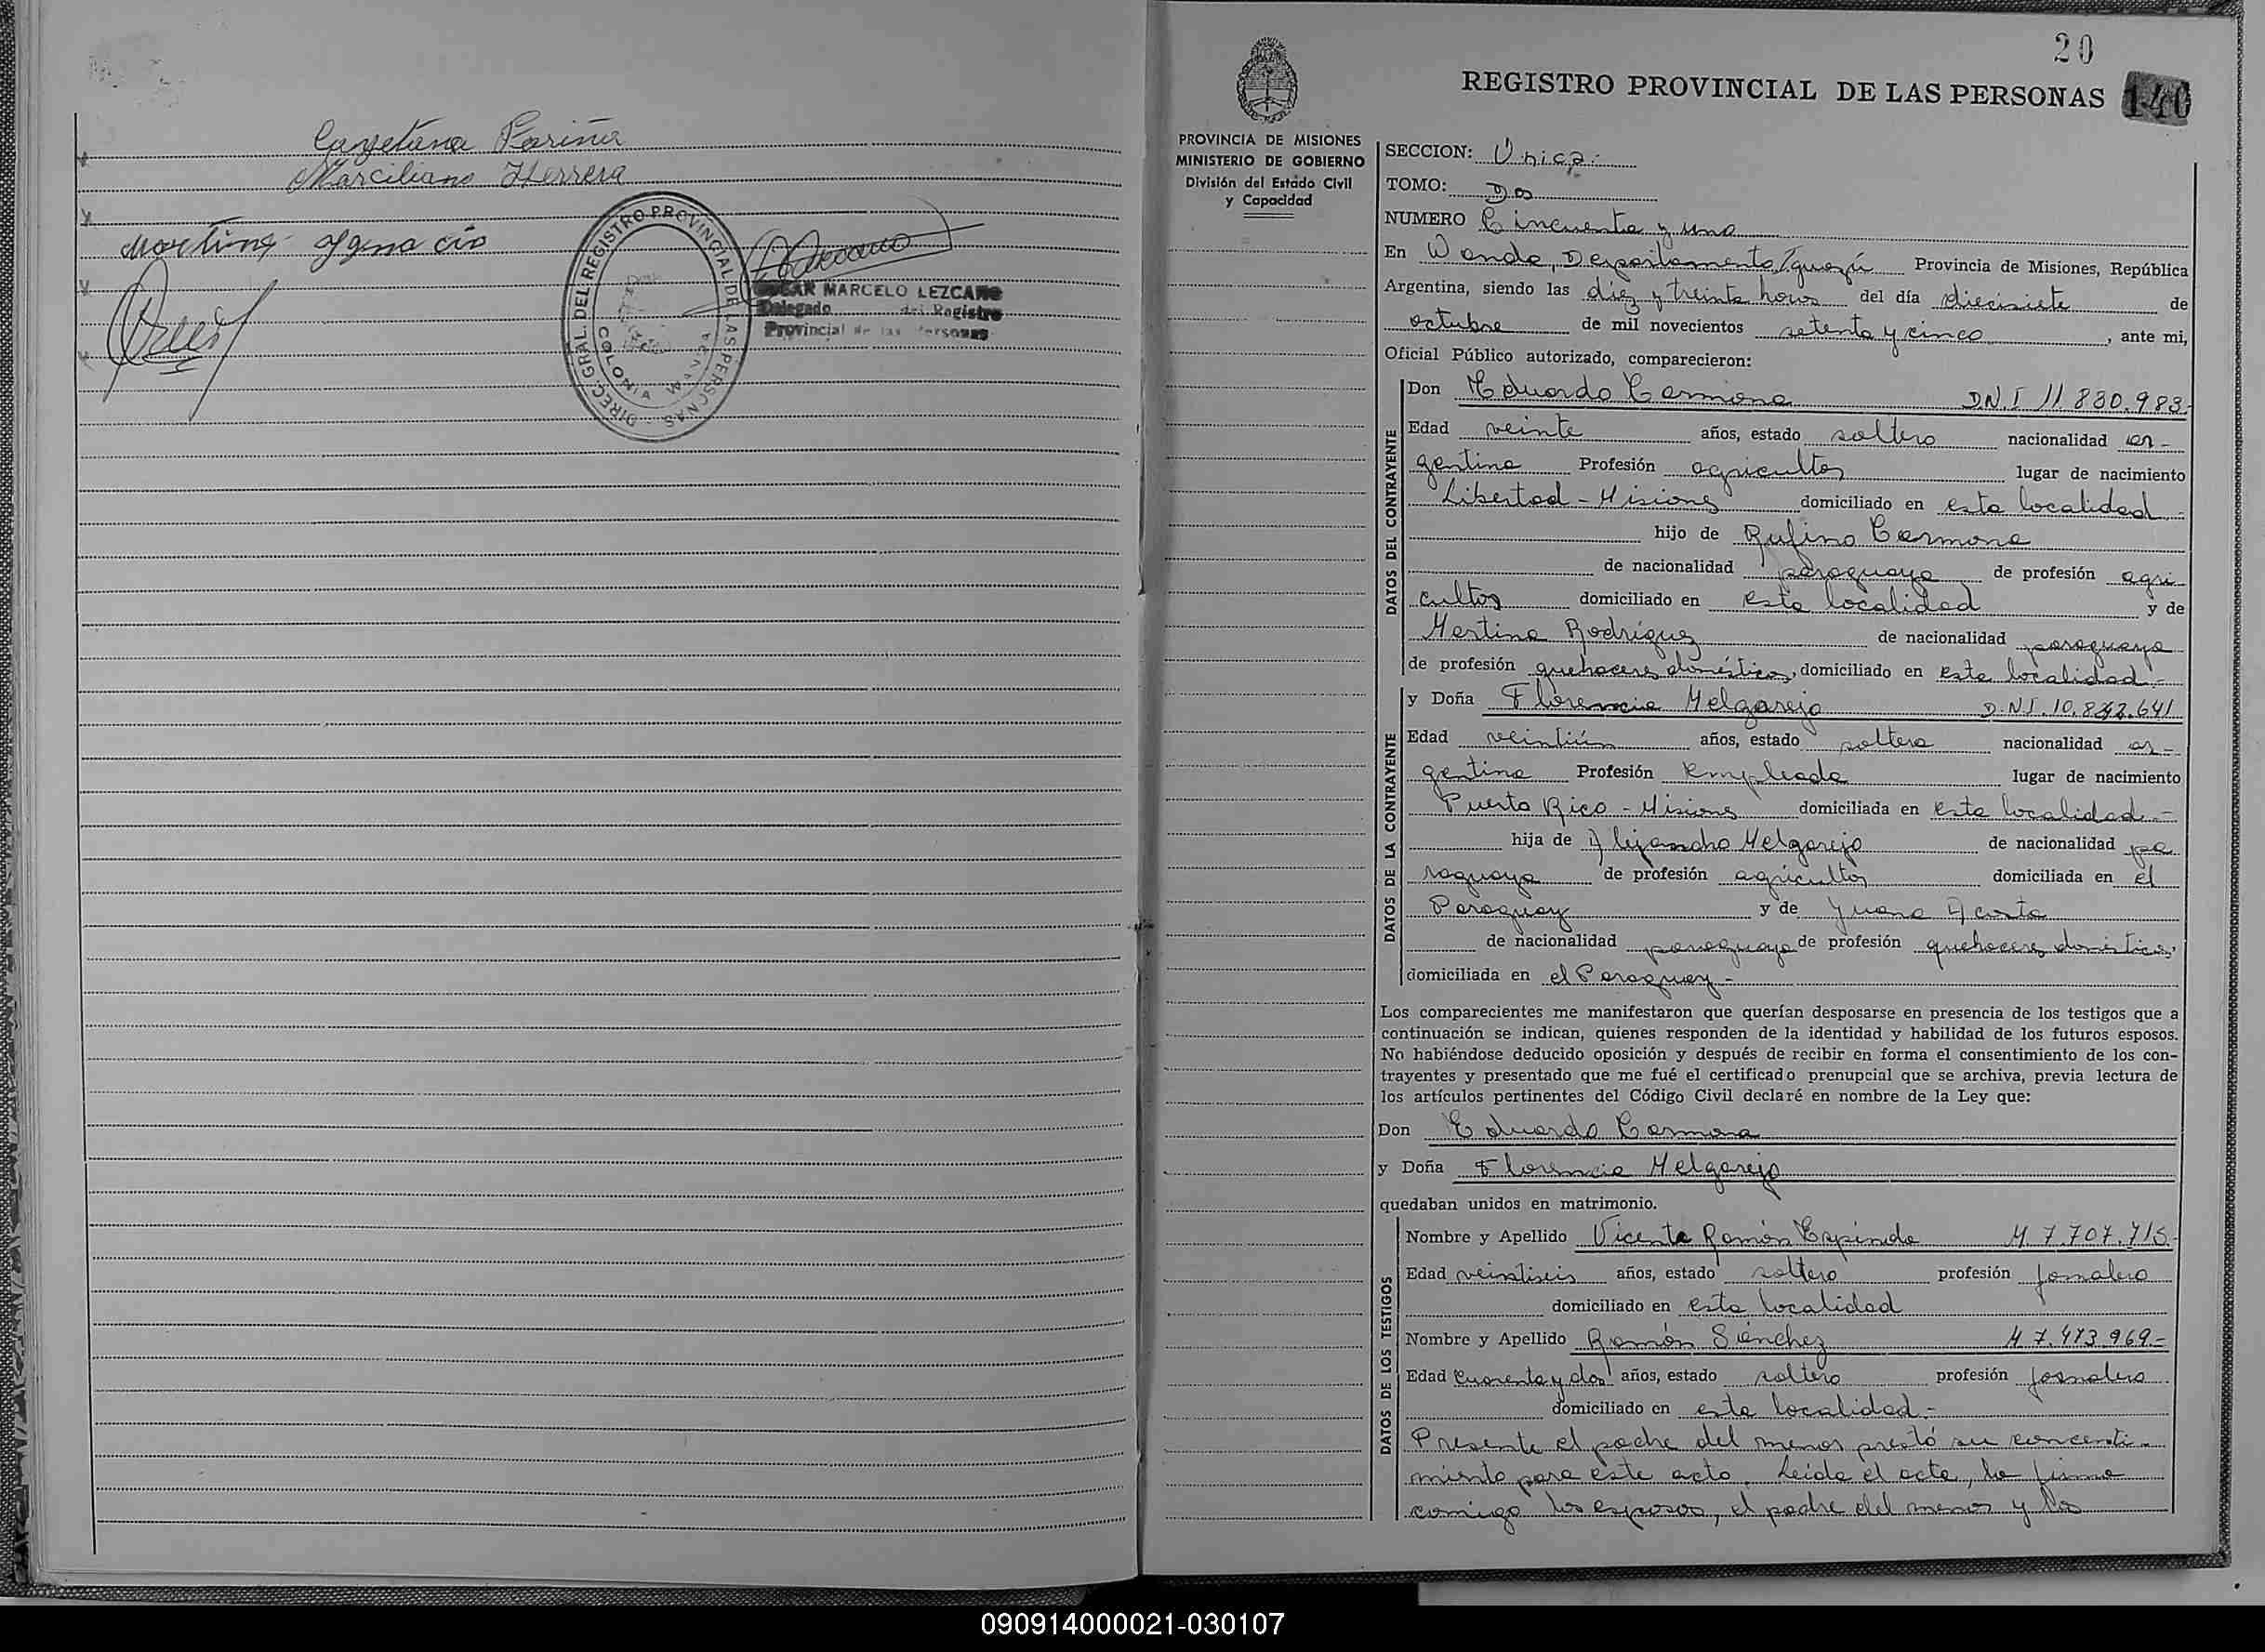 Cayetana Fariña
Marciliano Herrera
Martinez Ygnacio
OSCAR MARCELO LEZCANO
Delegado del Registro
Provincial de las Personas
DIREC. GRAL. DEL REGISTRO PROVINCIAL DE LAS PERSONAS
COLONIA WANDA
20
REGISTRO PROVINCIAL DE LAS PERSONAS
140
PROVINCIA DE MISIONES
MINISTERIO DE GOBIERNO
División del Estado Civil
y Capacidad
SECCION: Unica.-
TOMO: Dos
NUMERO Cincuenta y uno
En Wanda, Departamento Iguazú Provincia de Misiones, República
Argentina, siendo las diez y treinta horas del día diecisiete de
octubre de mil novecientos setenta y cinco, ante mi,
Oficial Público autorizado, comparecieron:
DATOS DEL CONTRAYENTE
Don Eduardo Carmona D.N.I 11.830.983.-
Edad veinte años, estado soltero nacionalidad ar-
gentina Profesión agricultor lugar de nacimiento
Libertad - Misiones domiciliado en esta localidad.-
hijo de Rufino Carmona
de nacionalidad paraguaya de profesión agri-
cultor domiciliado en esta localidad y de
Martina Rodríguez de nacionalidad paraguaya
de profesión quehaceres domésticos, domiciliado en esta localidad.-
DATOS DE LA CONTRAYENTE
y Doña Florencia Melgarejo D.N.I. 10.842.641
Edad veintiún años, estado soltera nacionalidad ar-
gentina Profesión Empleada lugar de nacimiento
Puerto Rico - Misiones domiciliada en esta localidad.-
hija de Alejandro Melgarejo de nacionalidad pa
raguaya de profesión agricultor domiciliada en el
Paraguay y de Juana Acosta
de nacionalidad paraguaya de profesión quehaceres domésticos,
domiciliada en el Paraguay.-
Los comparecientes me manifestaron que querían desposarse en presencia de los testigos que a
continuación se indican, quienes responden de la identidad y habilidad de los futuros esposos.
No habiéndose deducido oposición y después de recibir en forma el consentimiento de los con-
trayentes y presentado que me fué el certificado prenupcial que se archiva, previa lectura de
los artículos pertinentes del Código Civil declaré en nombre de la Ley que:
Don Eduardo Carmona
y Doña Florencia Melgarejo
quedaban unidos en matrimonio.
DATOS DE LOS TESTIGOS
Nombre y Apellido Vicente Ramón Espínda M 7.707.715.-
Edad veintiseis años, estado soltero profesión jornalero
domiciliado en esta localidad
Nombre y Apellido Ramón Sánchez M 7.473.969.-
Edad cuarenta y dos años, estado soltero profesión jornalero
domiciliado en esta localidad.-
Presente el padre del menor prestó su concenti-
miento para este acto. Leída el acta, la firma
comigo los esposos, el padre del menor y los
090914000021-030107